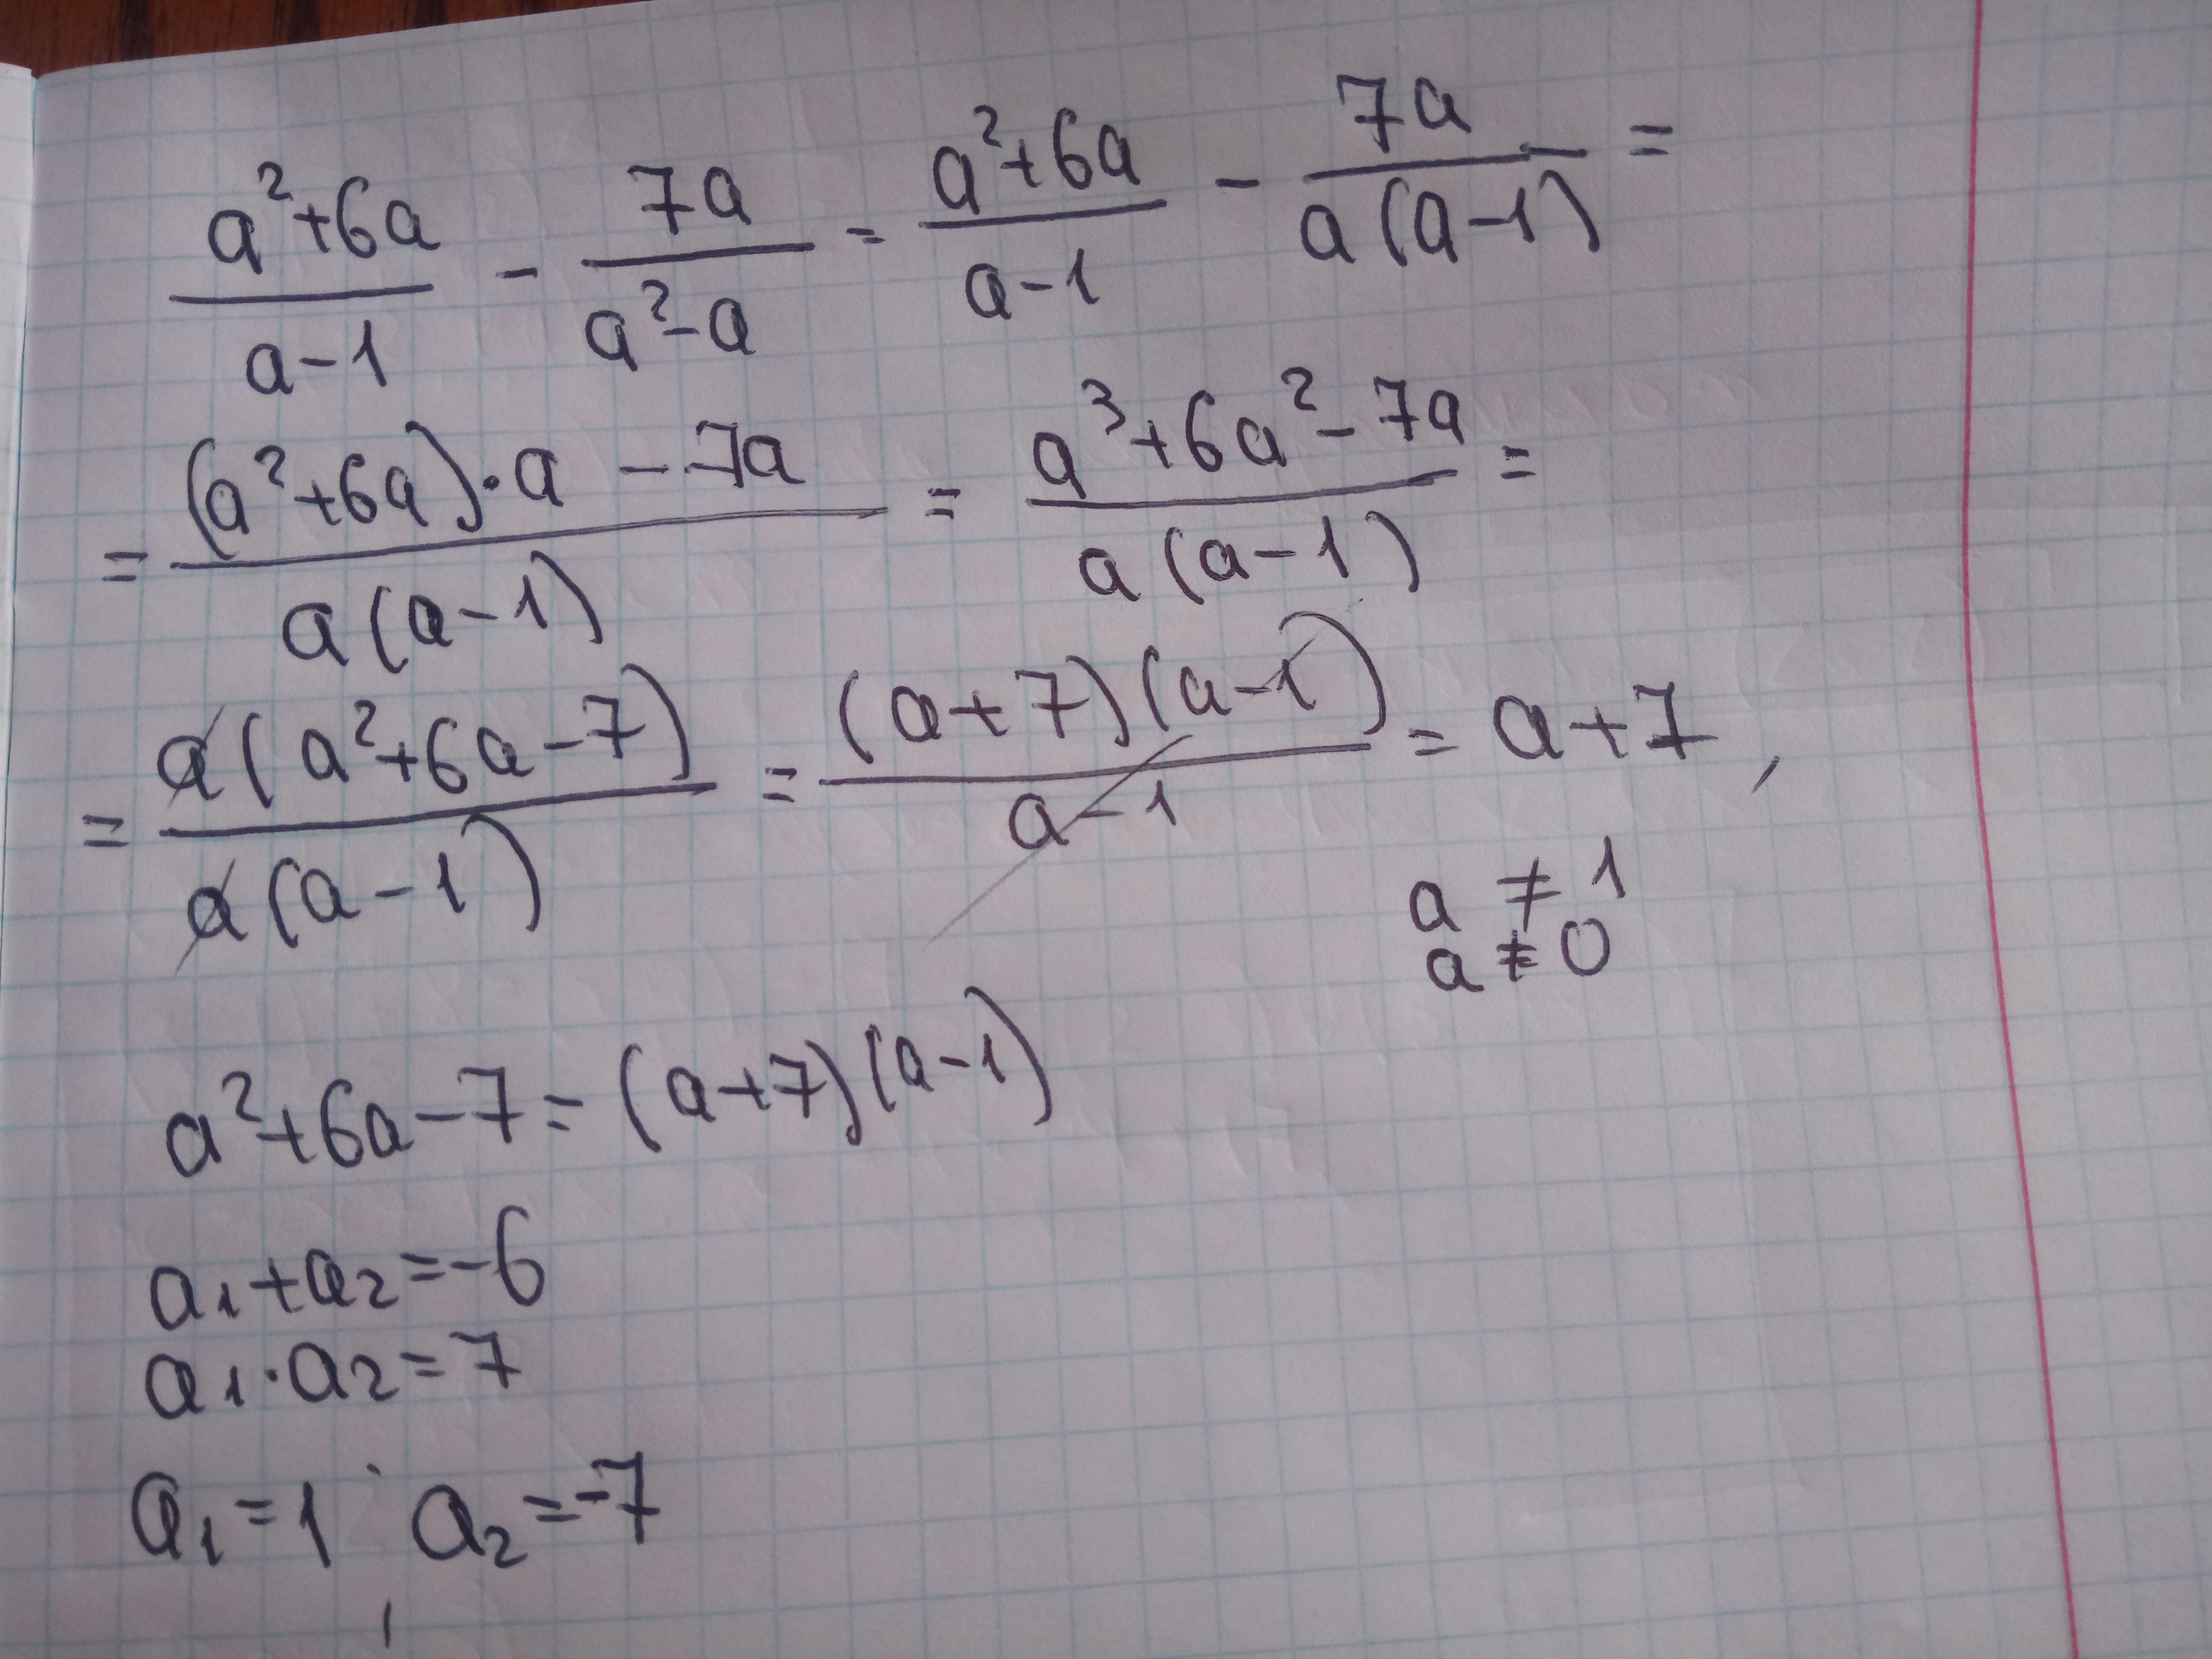 (a²+6a)/(a-1) - 7a/(a²-a) = (a²+6a)/(a-1) - 7a/(a(a-1)) =
= ((a²+6a)·a - 7a)/(a(a-1)) = (a³+6a²-7a)/(a(a-1)) =
= a(a²+6a-7)/(a(a-1)) = (a+7)(a-1)/(a-1) = a+7,
a ≠ 1
a ≠ 0
a²+6a-7=(a+7)(a-1)
a₁+a₂=-6
a₁·a₂=7
a₁=1, a₂=-7